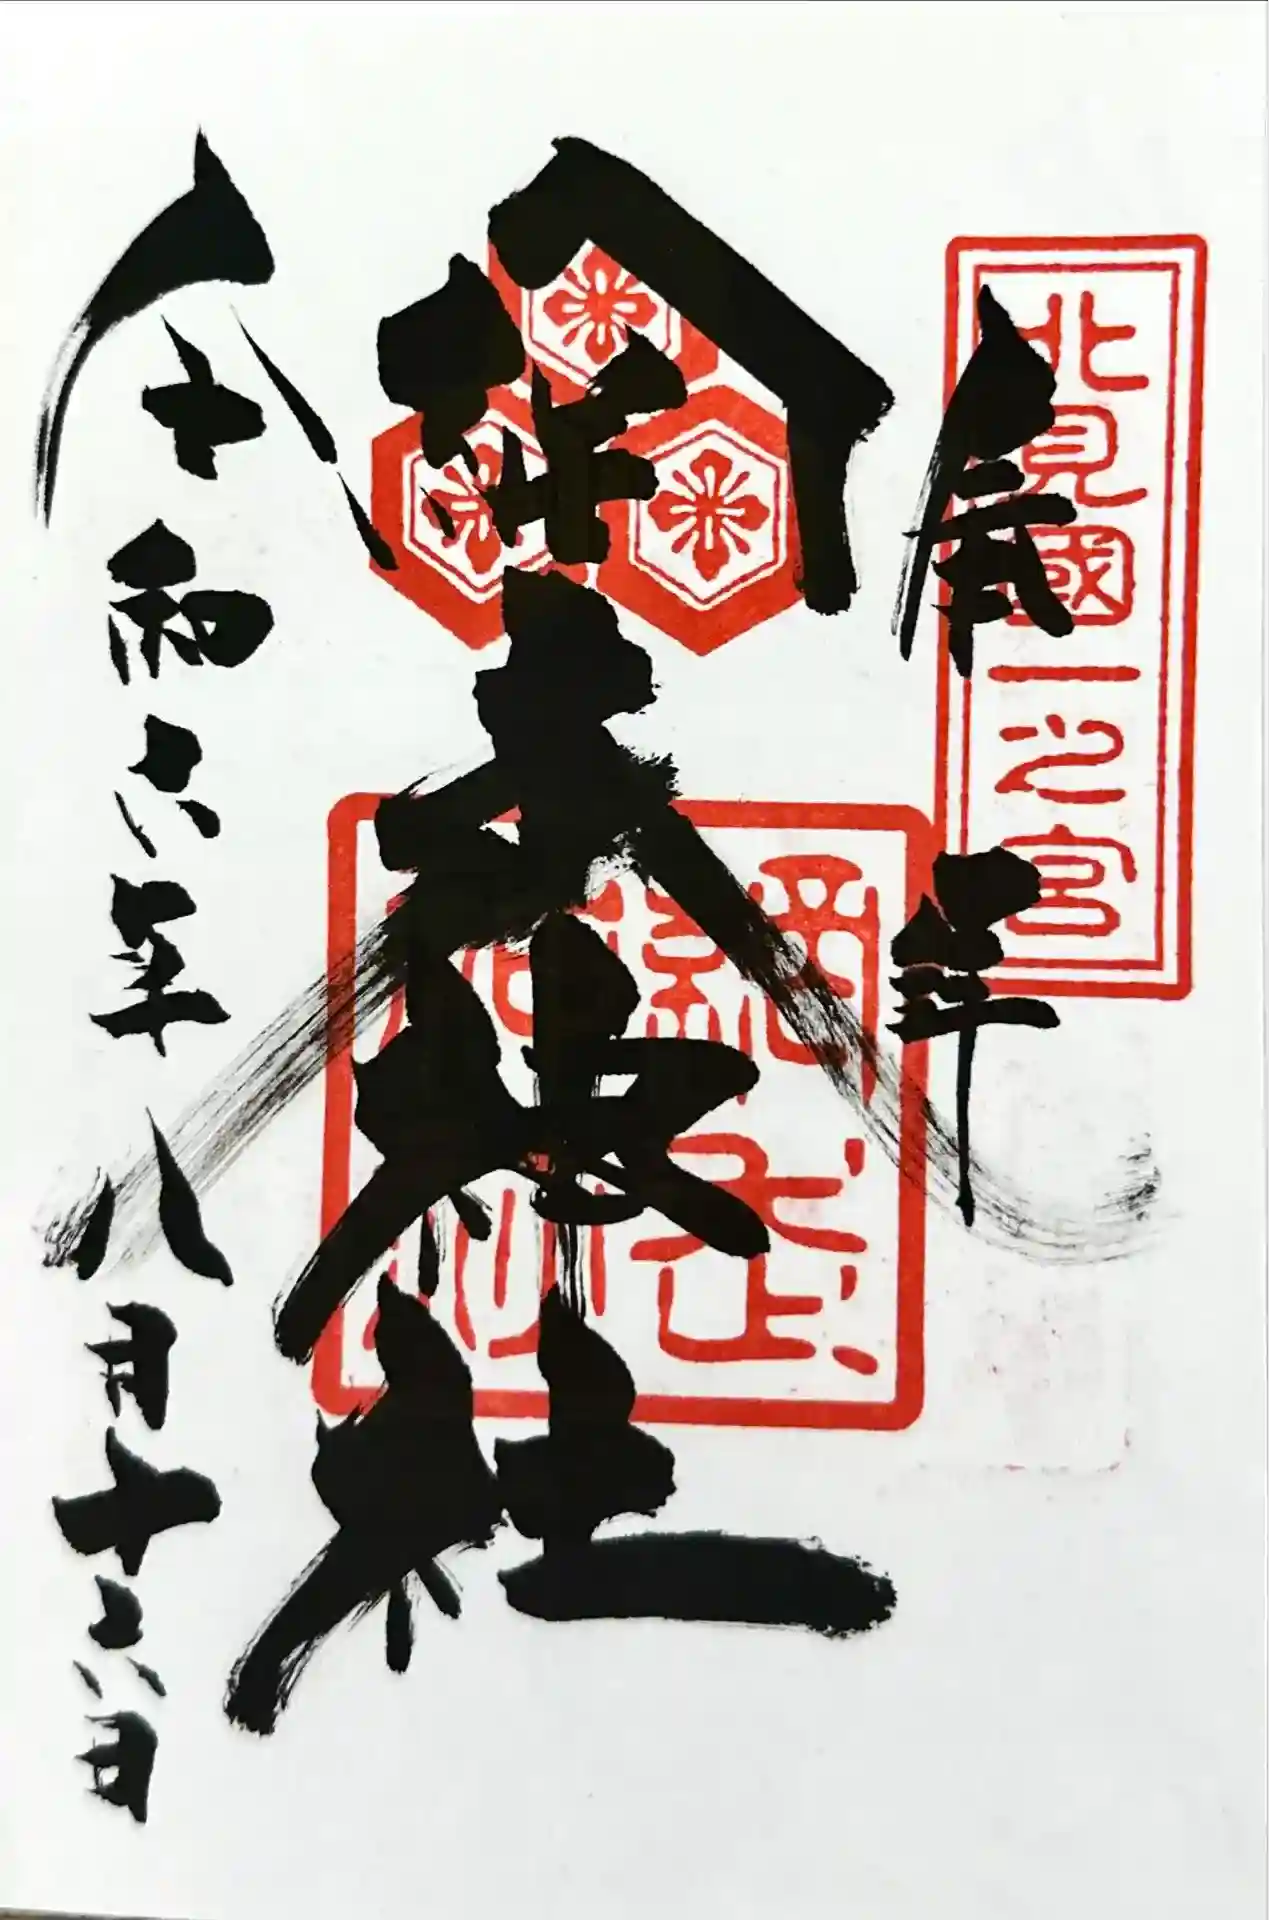 北見國一之宮
奉拝
網走神社
網走
令和六年八月十六日